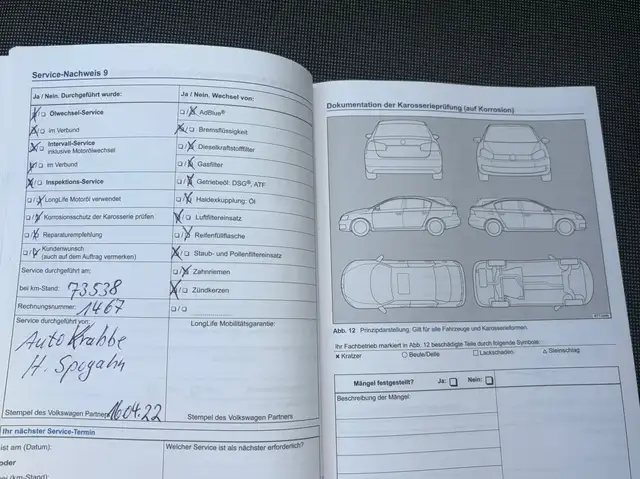 Service-Nachweis 9
Ja / Nein. Durchgeführt wurde:
Ölwechsel-Service
im Verbund
Intervall-Service
inklusive Motorölwechsel
im Verbund
Inspektions-Service
LongLife Motoröl verwendet
Korrosionsschutz der Karosserie prüfen
Reparaturempfehlung
Kundenwunsch
(auch auf dem Auftrag vermerken)
Service durchgeführt am:
bei km-Stand: 73538
Rechnungsnummer: 1467
Service durchgeführt von:
Auto Krabbe
H.
Stempel des Volkswagen Partners 16.04.22
Ja / Nein. Wechsel von:
AdBlue®
Bremsflüssigkeit
Dieselkraftstofffilter
Gasfilter
Getriebeöl: DSG®, ATF
Haldexkupplung: Öl
Luftfiltereinsatz
Reifenfüllflasche
Staub- und Pollenfiltereinsatz
Zahnriemen
Zündkerzen
LongLife Mobilitätsgarantie:
Stempel des Volkswagen Partners
Ihr nächster Service-Termin
ist am (Datum):
oder
bei (km-Stand):
Welcher Service ist als nächster erforderlich?
Dokumentation der Karosserieprüfung (auf Korrosion)
Abb. 12 Prinzipdarstellung: Gilt für alle Fahrzeuge und Karosserieformen.
Ihr Fachbetrieb markiert in Abb. 12 beschädigte Teile durch folgende Symbole:
x Kratzer ○ Beule/Delle □ Lackschaden △ Steinschlag
Mängel festgestellt? Ja: Nein:
Beschreibung der Mängel: